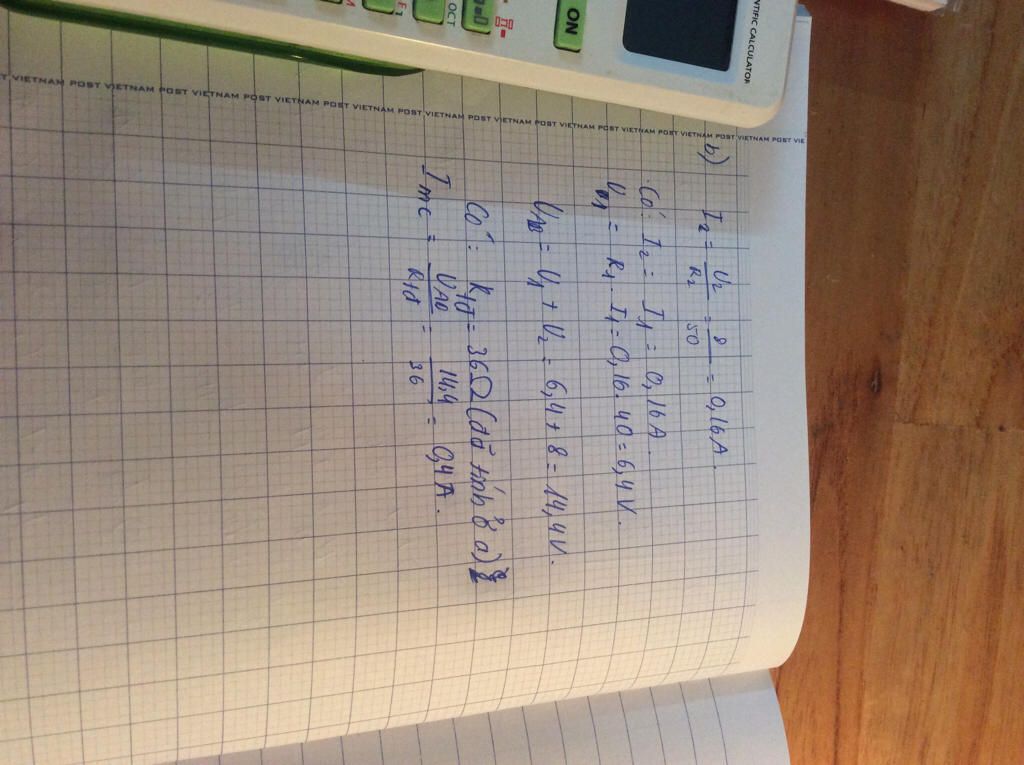 NTIFIC CALCULATOR
ON
OCT
F1
T VIETNAM POST VIETNAM POST VIETNAM POST VIETNAM POST VIETNAM POST VIETNAM POST VIETNAM POST VIETNAM POST VIETNAM POST VIE
b)
I2 = U2/R2 = 8/50 = 0,16A.
Có: I2 = I1 = 0,16A.
U1 = R1 . I1 = 0,16. 40 = 6,4V.
UAB = U1 + U2 = 6,4 + 8 = 14,4V.
Có: Rtđ = 36Ω (đã tính ở a)
Imc = UAB/Rtđ = 14,4/36 = 0,4A.